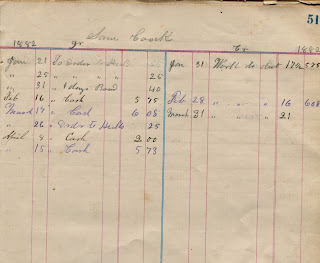 51
Sam Cook
1882 Dr Cr 1882
Jan 21 To Order to Jan 31 Work to date 575
" 25 " " " 26
" 31 " 1 days 40
Feb 16 " Cash 5 75 Feb 28 " " " 16 608
March 17 " Cash 6 08 March 31 " " " 21
" 26 " Order to 25
April 8 " Cash 2 00
15 " Cash 5 73